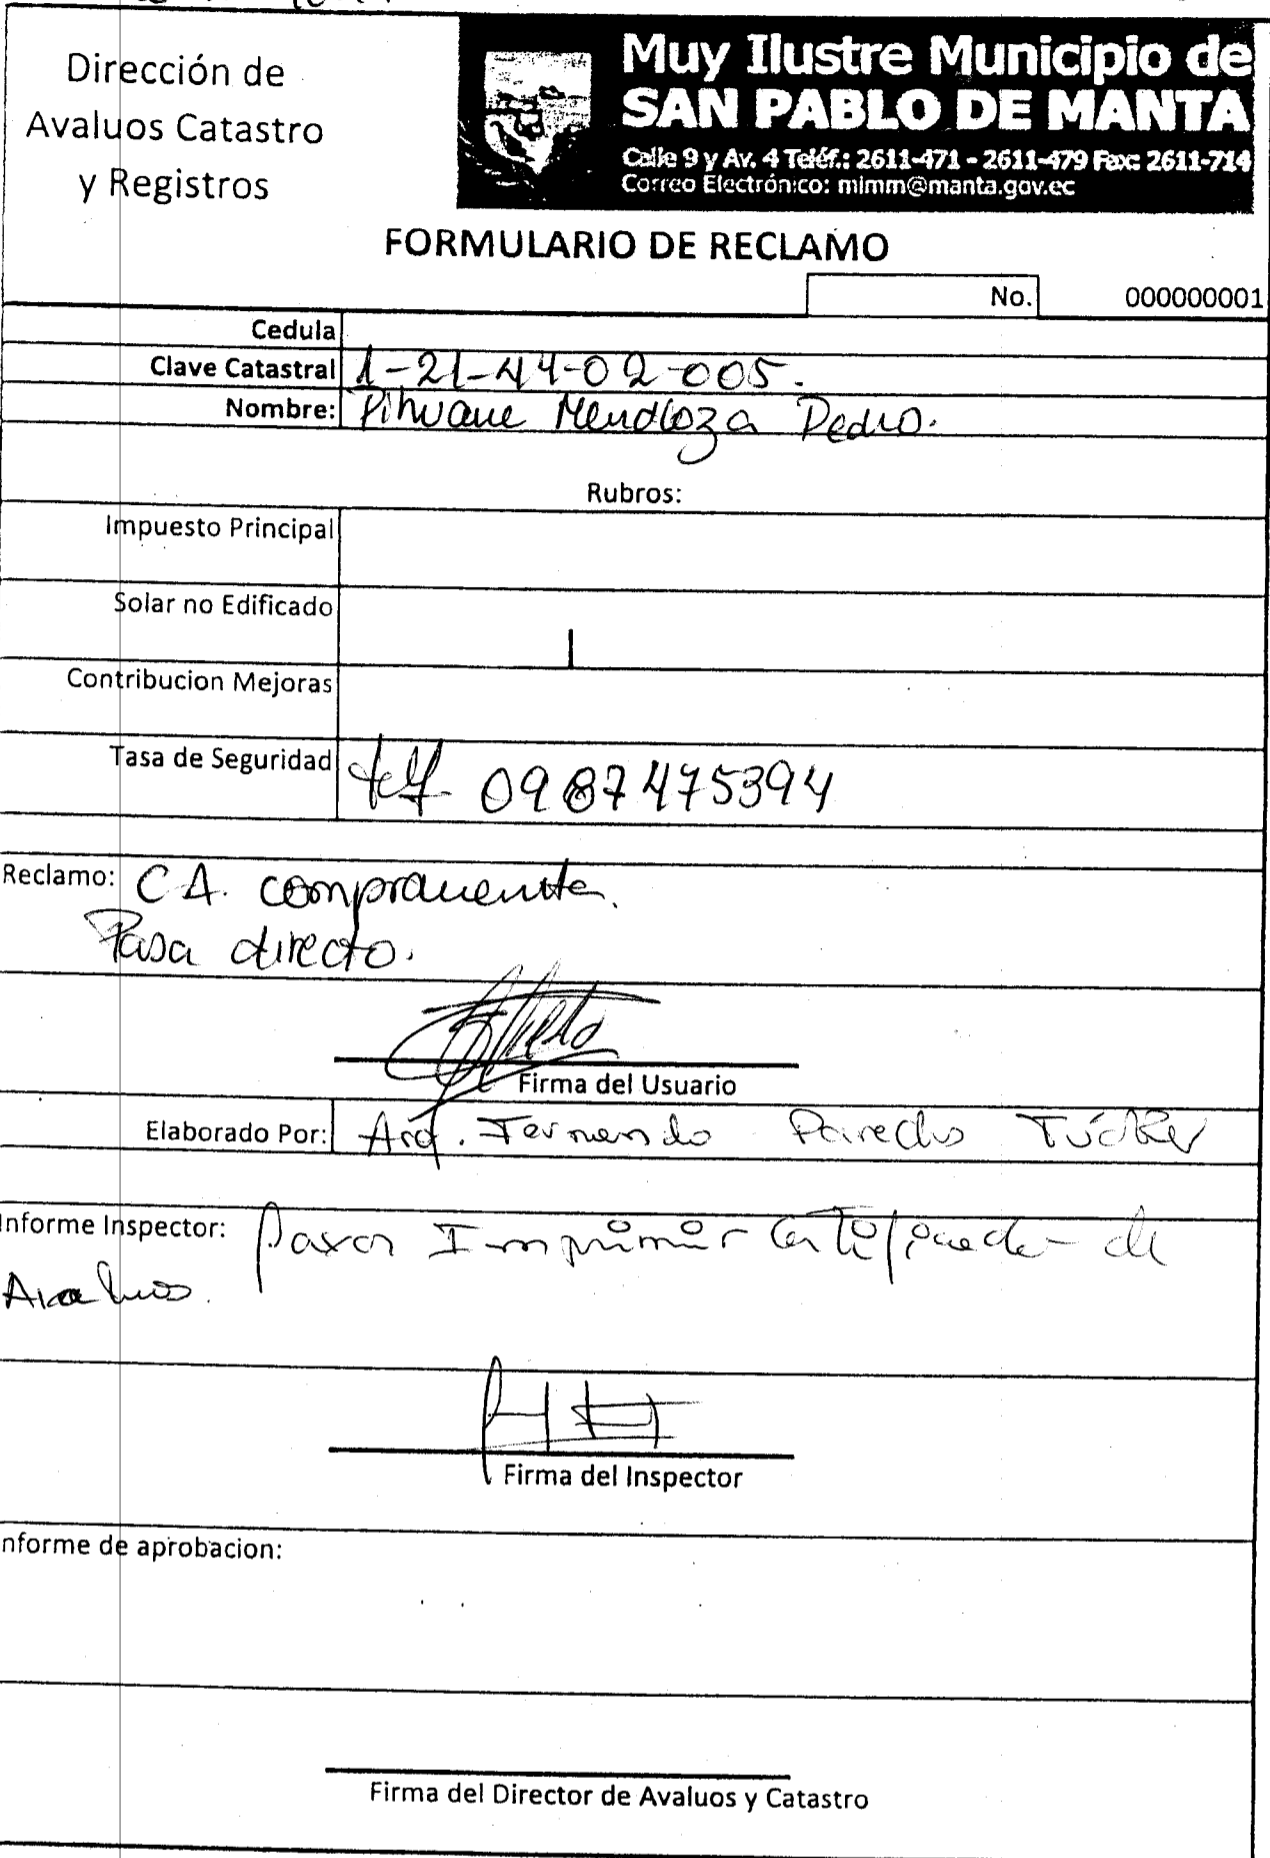 Dirección de
Avaluos Catastro
y Registros
Muy Ilustre Municipio de
SAN PABLO DE MANTA
Calle 9 y Av. 4 Teléf.: 2611-471 - 2611-479 Fax: 2611-714
Correo Electrónico: mimm@manta.gov.ec
FORMULARIO DE RECLAMO
No. 000000001
Cedula
Clave Catastral 1-21-44-02-005.
Nombre: Pihuave Mendoza Pedro.
Rubros:
Impuesto Principal
Solar no Edificado
Contribucion Mejoras
Tasa de Seguridad telf 0987475394
Reclamo: CA. compraventa.
Pasa directo.
Firma del Usuario
Elaborado Por: Arq. Fernando Paredes Túcker
Informe Inspector: Para Imprimir Certificado de
Avaluos.
Firma del Inspector
nforme de aprobacion:
Firma del Director de Avaluos y Catastro